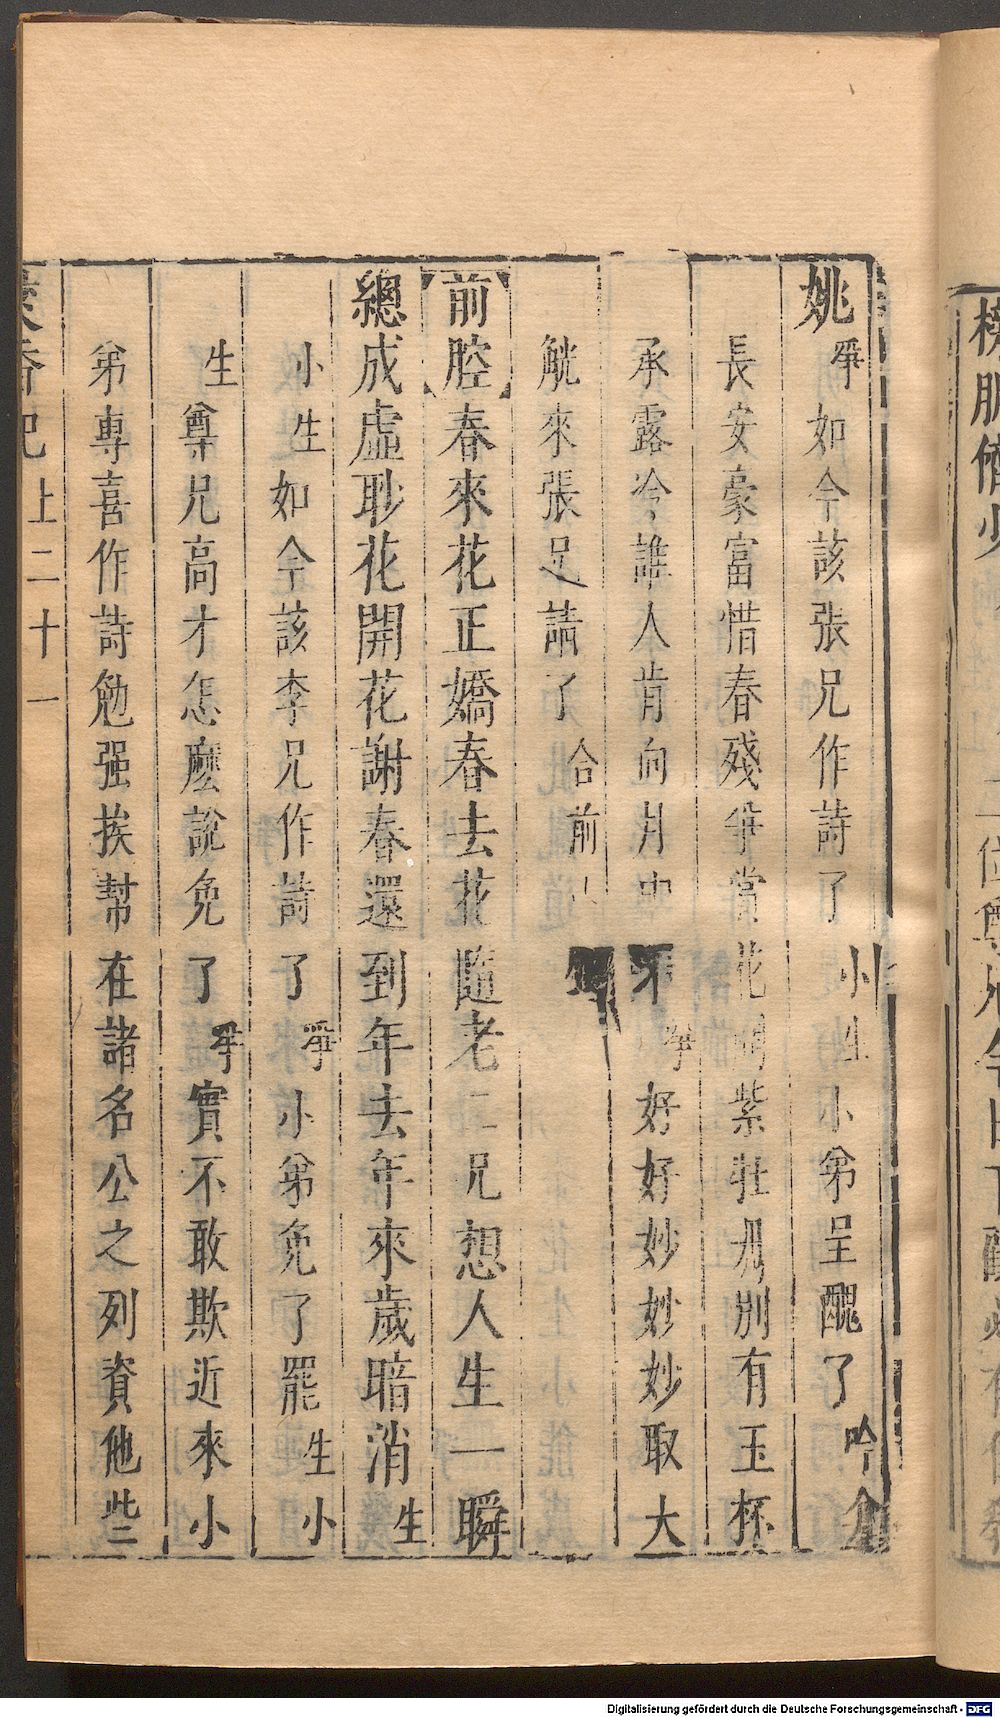 姚 爭 如今該張兄作詩了 小生 小弟呈醜了 吟介
長安豪富惜春殘爭賞 花 紫壯丹別有玉杯
承露冷誰人肯向月中 爭 好好妙妙妙取大
觥來張兄請了 合前
前腔 春來花正嬌春去花隨老二兄想人生一瞬
總成虛眇花開花謝春還到年去年來歲暗消 生
小生 如今該李兄作詩了 爭 小弟免了罷 生小
生 尊兄高才怎麽說免了 爭 實不敢欺近來小
弟專喜作詩勉强挨幫在諸名公之列資他些
香記 上 二十一
Digitalisierung gefördert durch die Deutsche Forschungsgemeinschaft - DFG